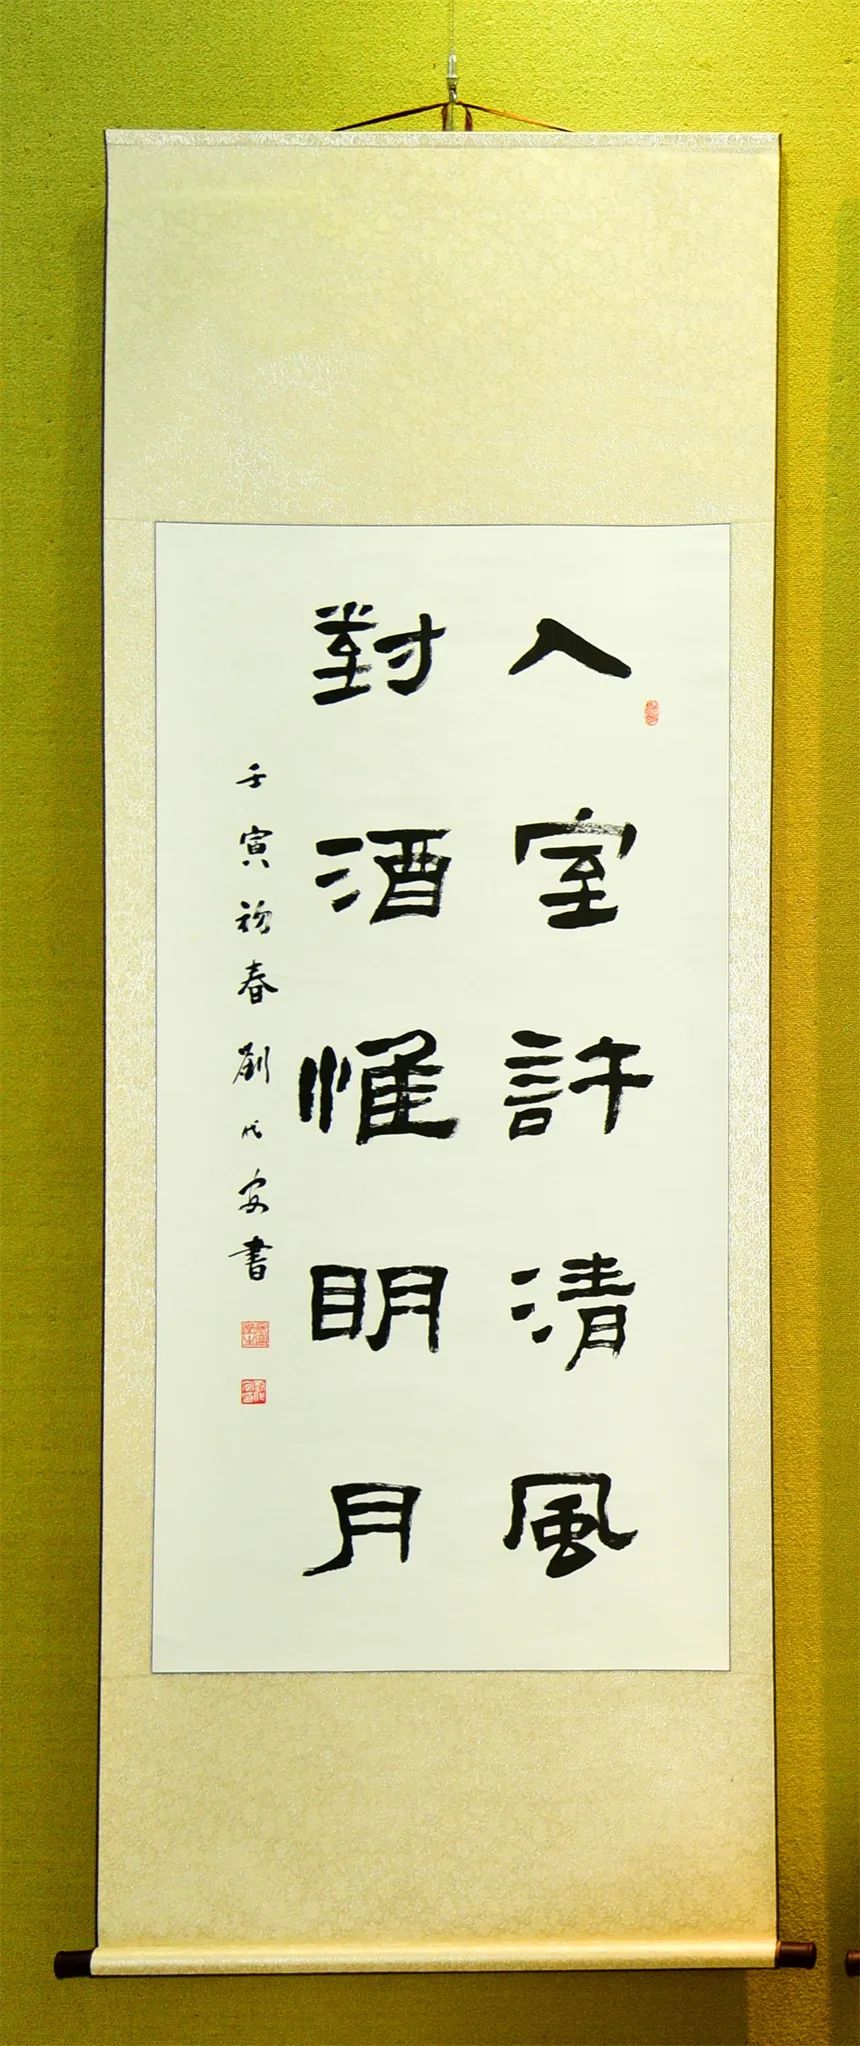 入室許清風
對酒惟明月
壬寅初春劉代安書